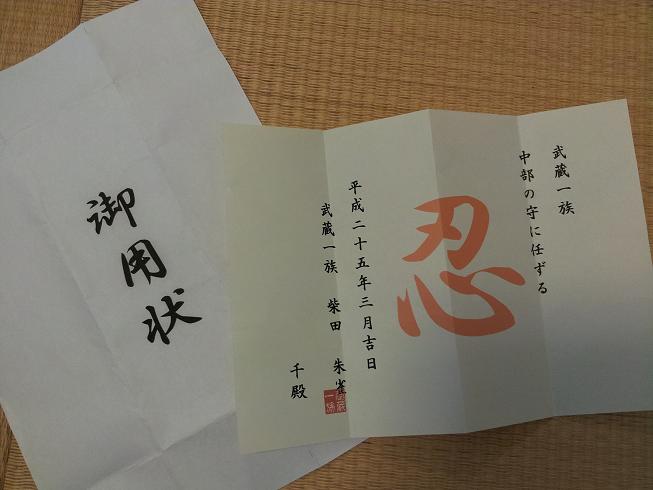 御用状
武蔵一族
中部の守に任ずる
忍
平成二十五年三月吉日
武蔵一族 柴田 朱雀
千殿
武蔵一族